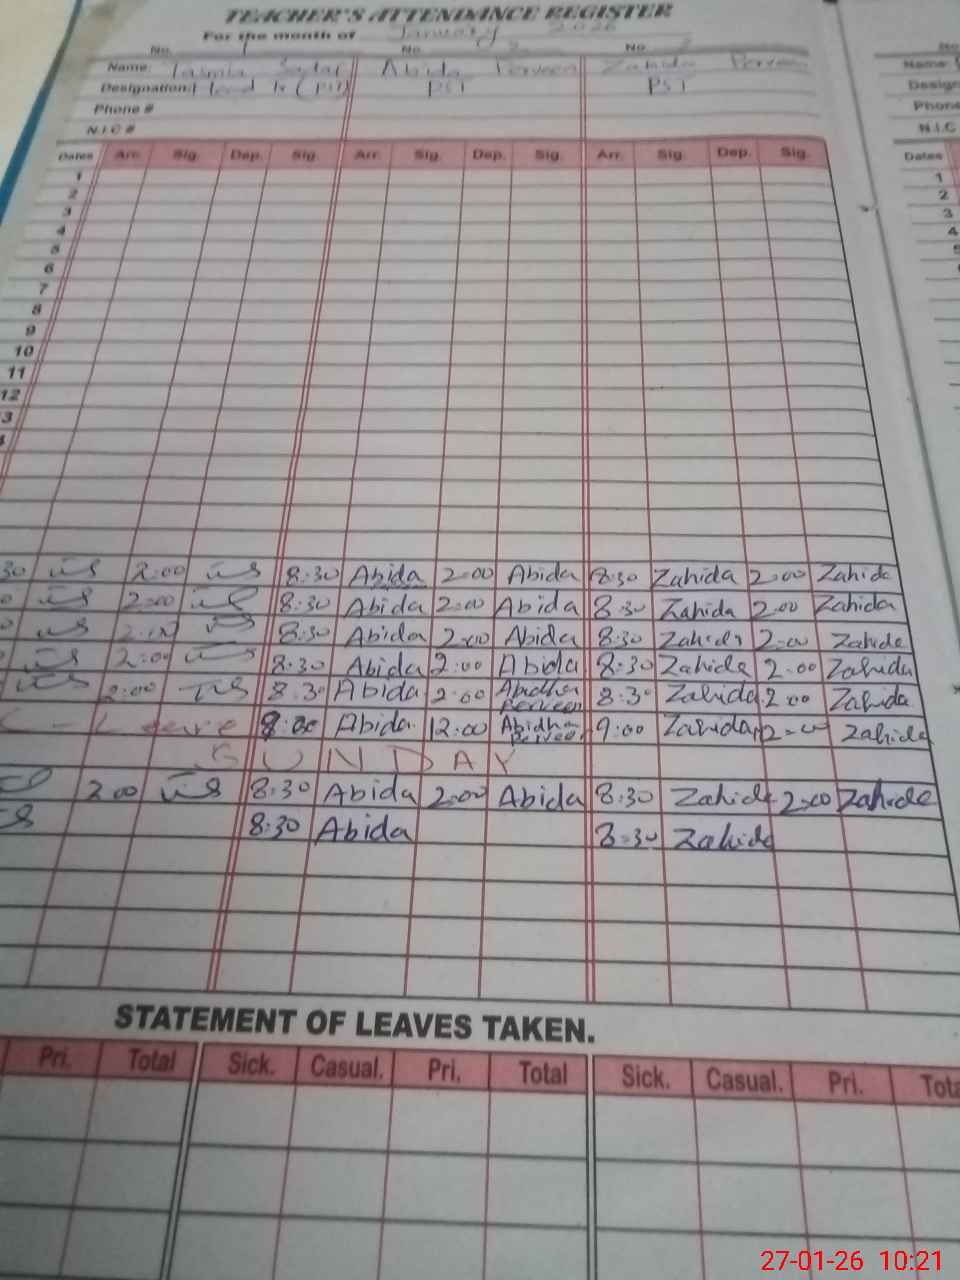 TEACHER'S ATTENDANCE REGISTER
For the month of January 2026
No. 1 No. 2 No. 3
Name: Abida Perveen Zahida Perveen
Designation: Head PST PST
Phone #
N.I.C #
Dates Arr. Sig. Dep. Sig. Arr. Sig. Dep. Sig. Arr. Sig. Dep. Sig.
1
2
3
4
5
6
7
8
9
10
11
12
3
30 2:00 8:30 Abida 2:00 Abida 8:30 Zahida 2:00 Zahida
2:00 8:30 Abida 2:00 Abida 8:30 Zahida 2:00 Zahida
2:00 8:30 Abida 2:00 Abida 8:30 Zahida 2:00 Zahida
2:00 8:30 Abida 2:00 Abida 8:30 Zahida 2:00 Zahida
2:00 8:30 Abida 2:00 Abidha Perveen 8:30 Zahida 2:00 Zahida
C-Leave Abida 12:00 Abidha Perveen 9:00 Zahida Zahida
SUNDAY
2:00 8:30 Abida 2:00 Abida 8:30 Zahida 2:00 Zahida
8:30 Abida 8:30 Zahida
STATEMENT OF LEAVES TAKEN.
Pri. Total Sick. Casual. Pri. Total Sick. Casual. Pri.
No
Name:
Phone
N.I.C
Dates
1
2
3
4
27-01-26 10:21